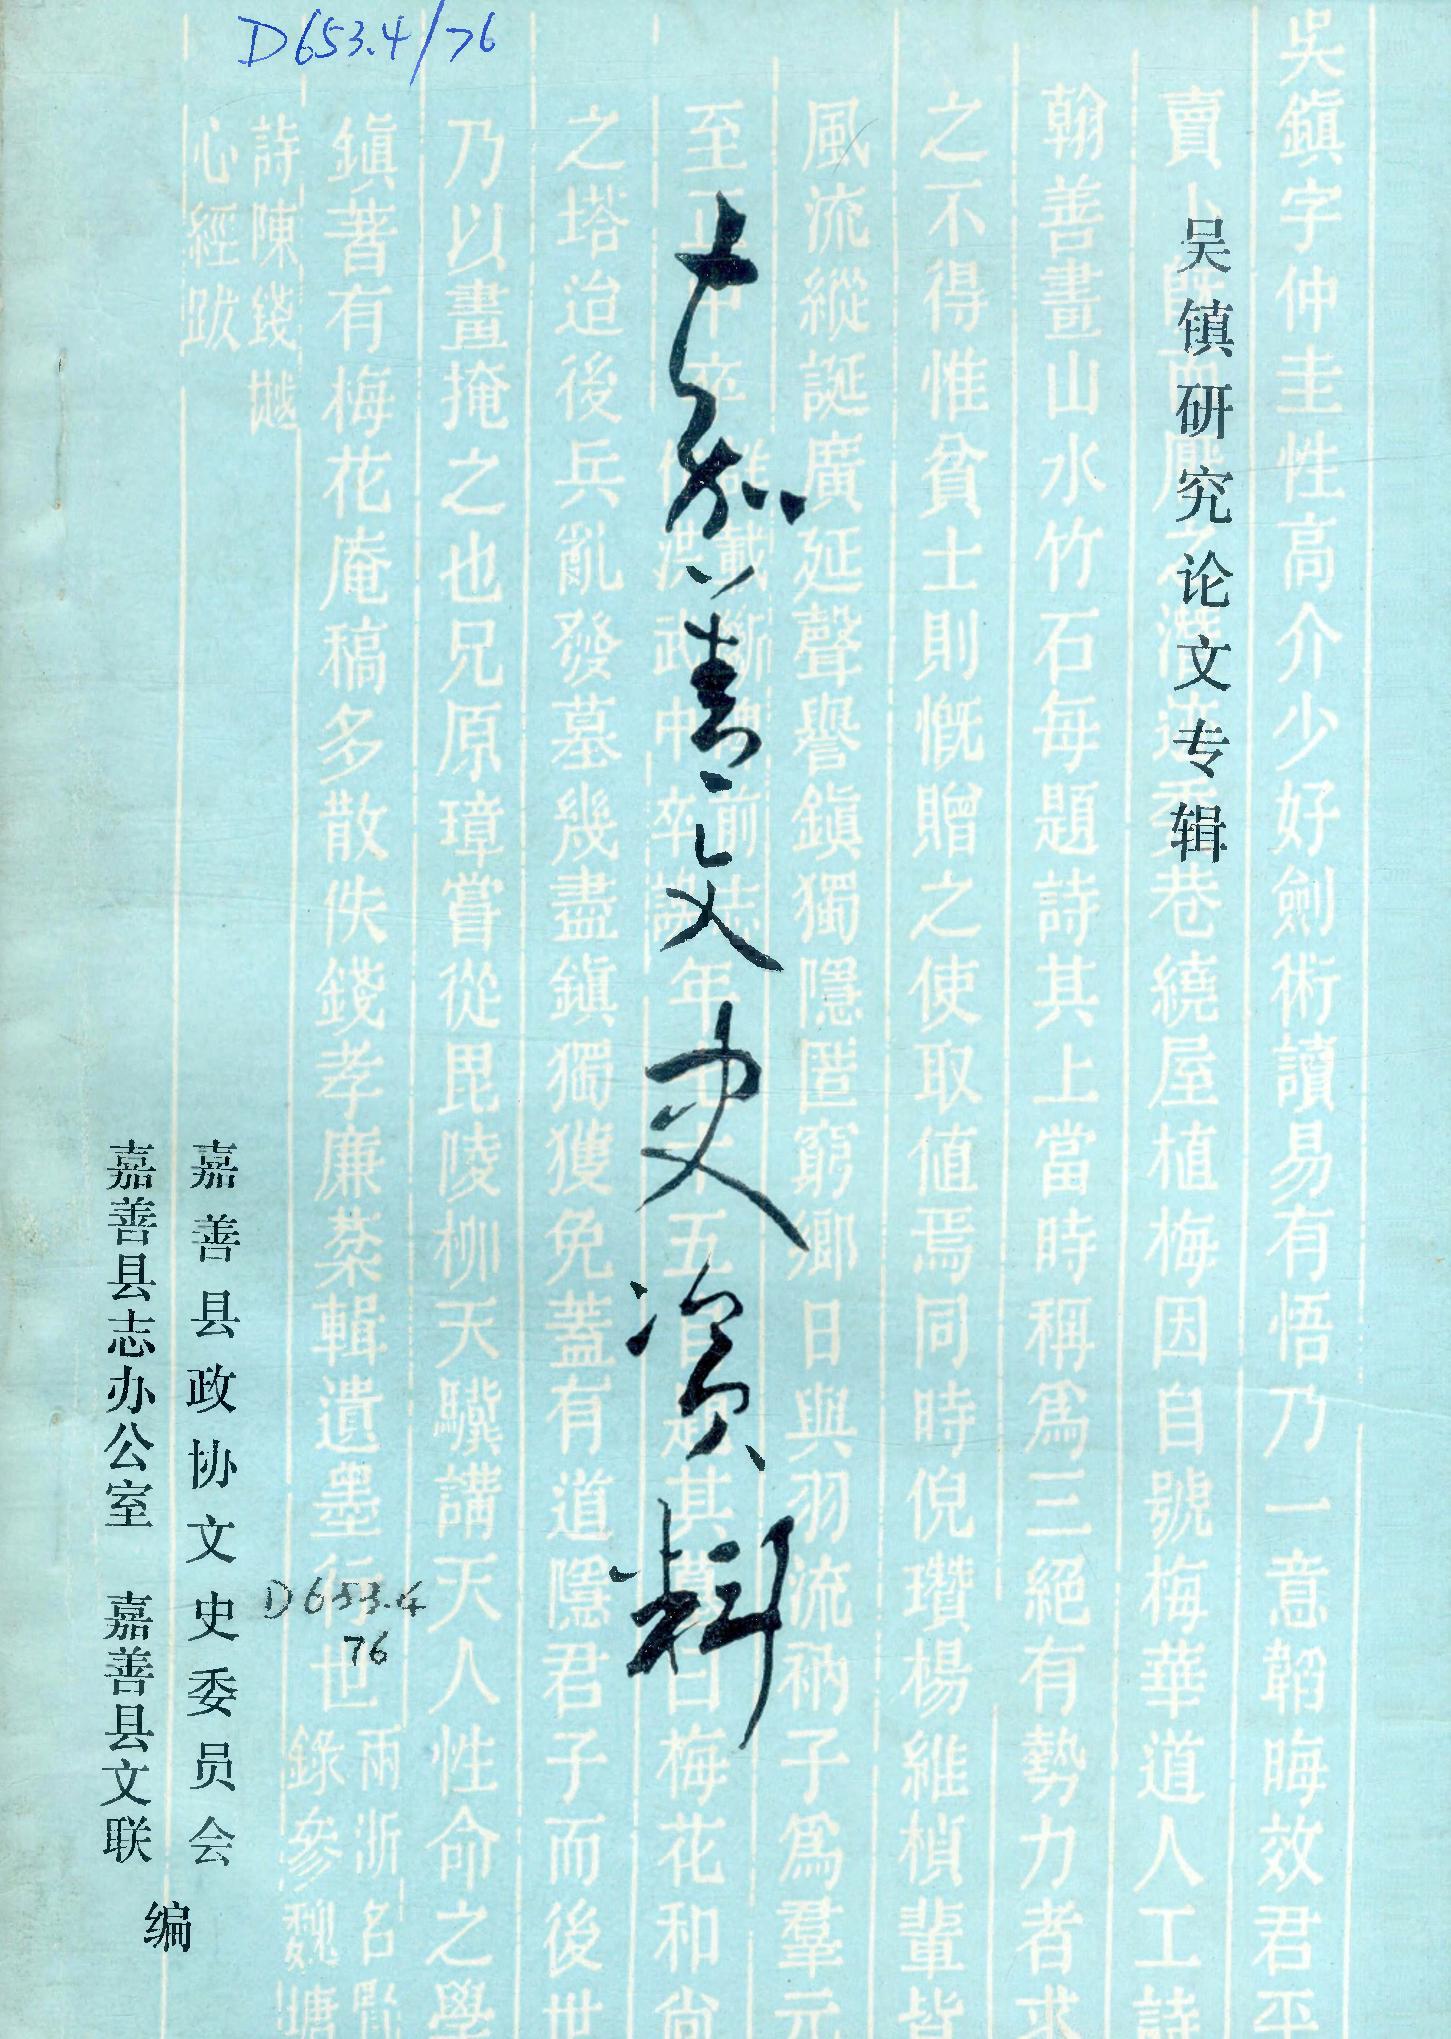 D653.4/76
吴镇研究论文专辑
嘉善文史资料
嘉善县政协文史委员会
嘉善县志办公室 嘉善县文联
编
D653.4
76
吳鎭字仲圭性高介少好劍術讀易有悟乃一意韜晦效君平
賣卜
巷繞屋植梅因自號梅華道人工詩
翰善畫山水竹石每題詩其上當時稱爲三絕有勢力者求
之不得惟貧士則慨贈之使取值焉同時倪瓚楊維楨輩皆
風流縱誕廣延聲譽鎭獨隱匿窮鄉日與羽流衲子爲羣元
至正
卒
年
五
其
曰梅花和尙
之塔迨後兵亂發墓幾盡鎭獨獲免蓋有道隱君子而後世
乃以畫掩之也兄原璋嘗從毘陵柳天驥講天人性命之學
鎭著有梅花庵稿多散佚錢孝廉棻輯遺墨行世
兩浙名
錄參魏塘
詩陳錢
心經跋